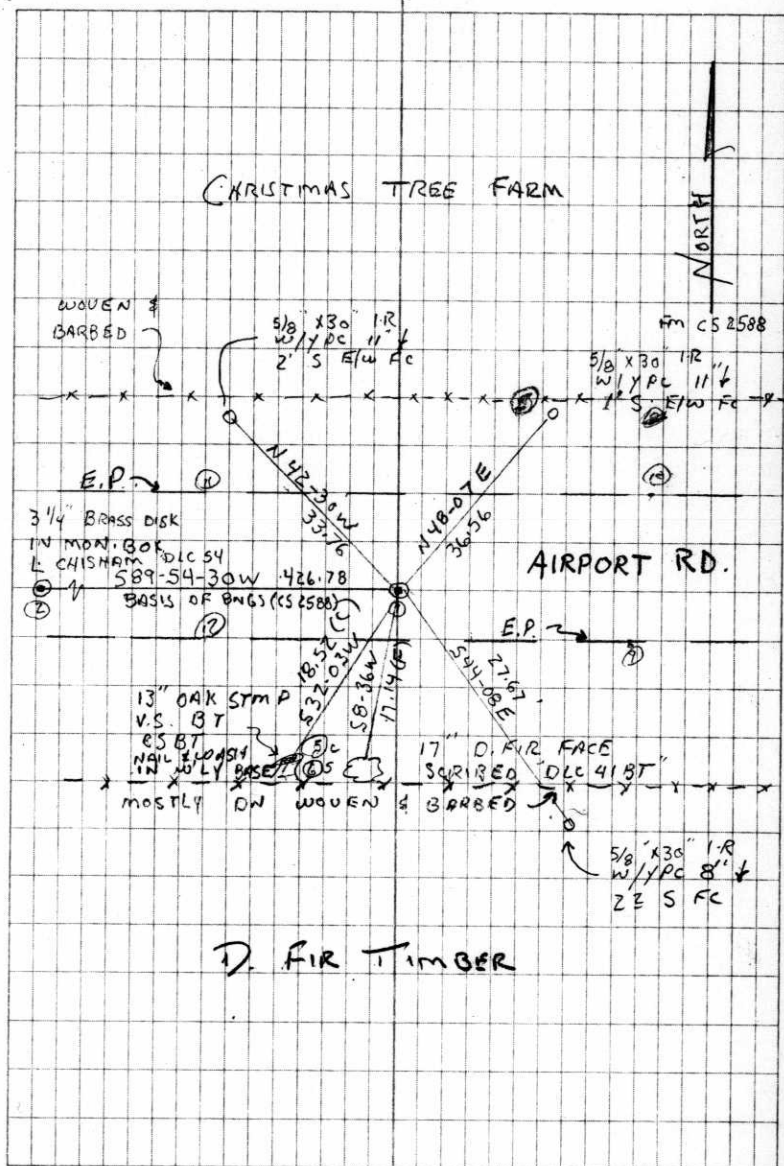 CHRISTMAS TREE FARM
NORTH
Fm CS 2588
WOVEN &
BARBED
5/8" X30" I.R
W/YPC 11" ↓
2' S E/W FC
5/8" X 30" I.R
W/YPC 11" ↓
1' S. E/W FC
N 42-30W
33.76
N48-07E
36.56
E.P.
3 1/4" BRASS DISK
IN MON. BOX
L CHISHAM DLC 54
S89-54-30W 426.78
BASIS OF BNGS (CS 2588)
AIRPORT RD.
E.P.
18.52 (C)
S32-03W
S8-36W
17.14 (F)
27.67
S44-08E
13" OAK STMP
V.S. BT
NAIL &
IN W'LY BASE
17" D. FIR FACE
SCRIBED "DLC 41 BT"
MOSTLY DN WOVEN & BARBED
5/8" X30" I.R
W/YPC 8" ↓
S FC
D. FIR TIMBER